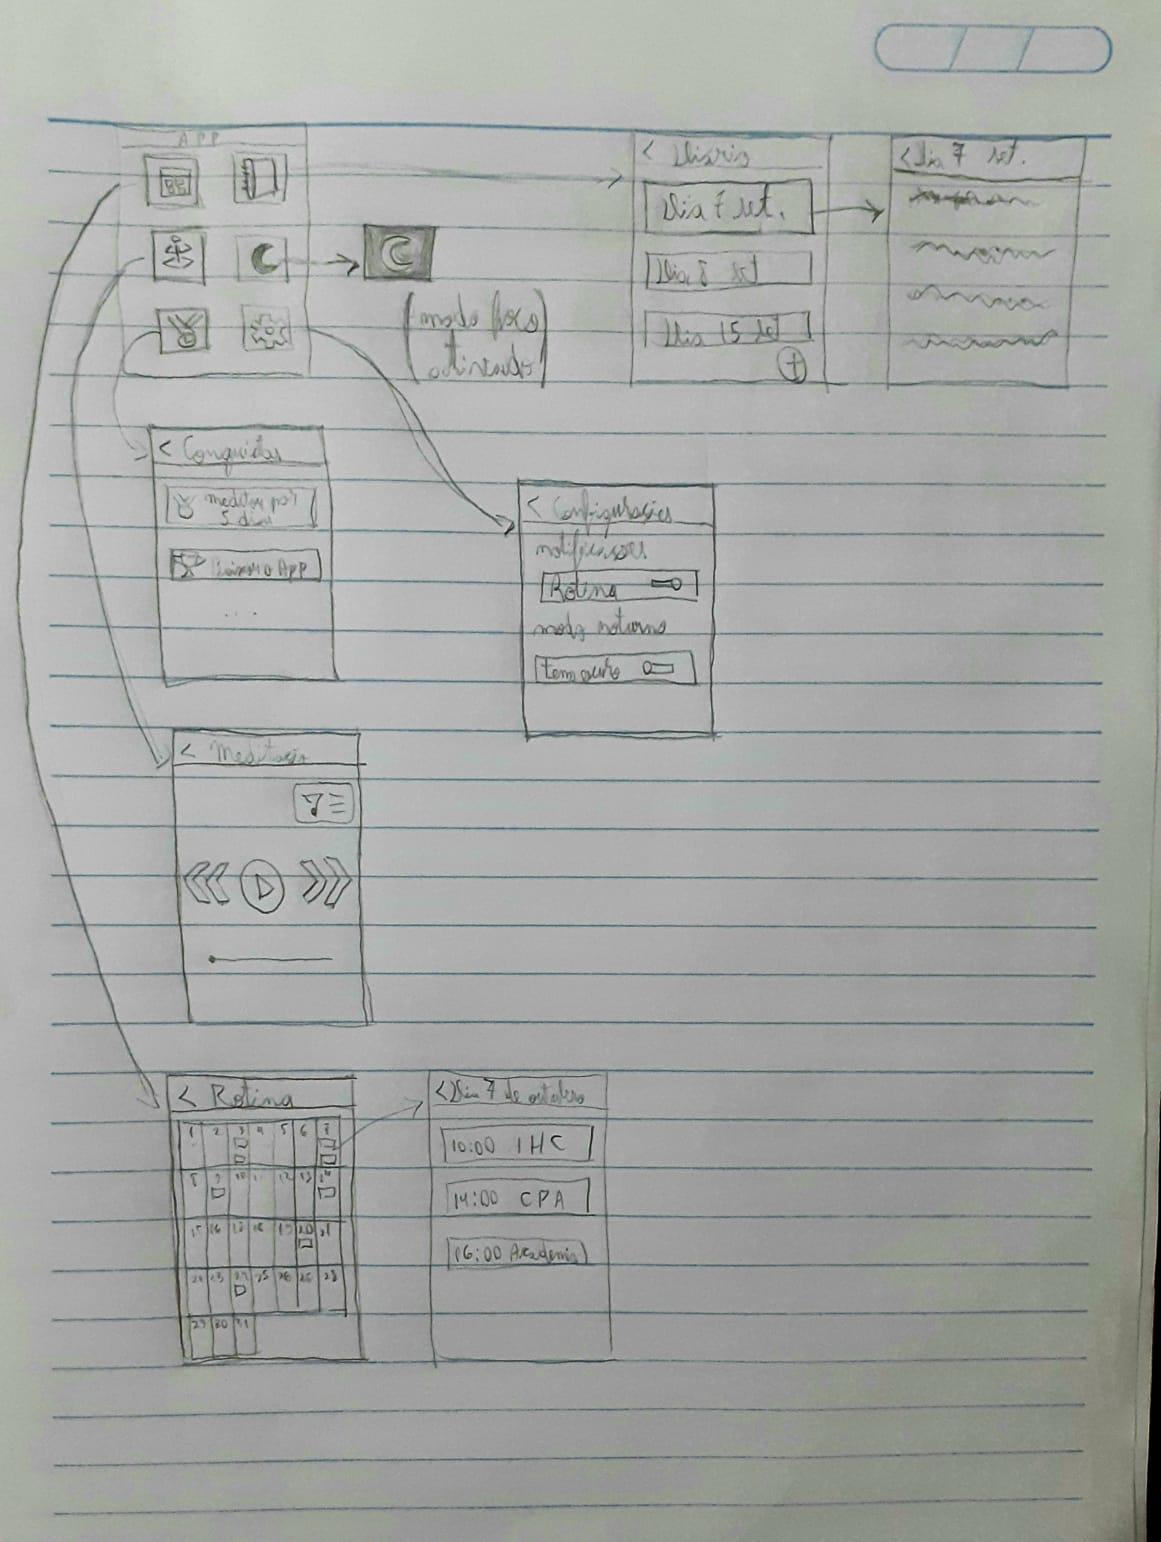 APP
< Diário
Dia 7 set.
Dia 8 set
Dia 15 set
+
< Dia 7 set.
(modo foco
ativado)
< Conquistas
meditar por
5 dias
Baixar o App
...
< Configurações
notificações
Rotina
modo noturno
tema escuro
< Meditação
< Rotina
1 2 3 4 5 6 7
8 9 10 11 12 13 14
15 16 17 18 19 20 21
29 30 31
< Dia 7 de outubro
10:00 IHC
14:00 CPA
16:00 Academia